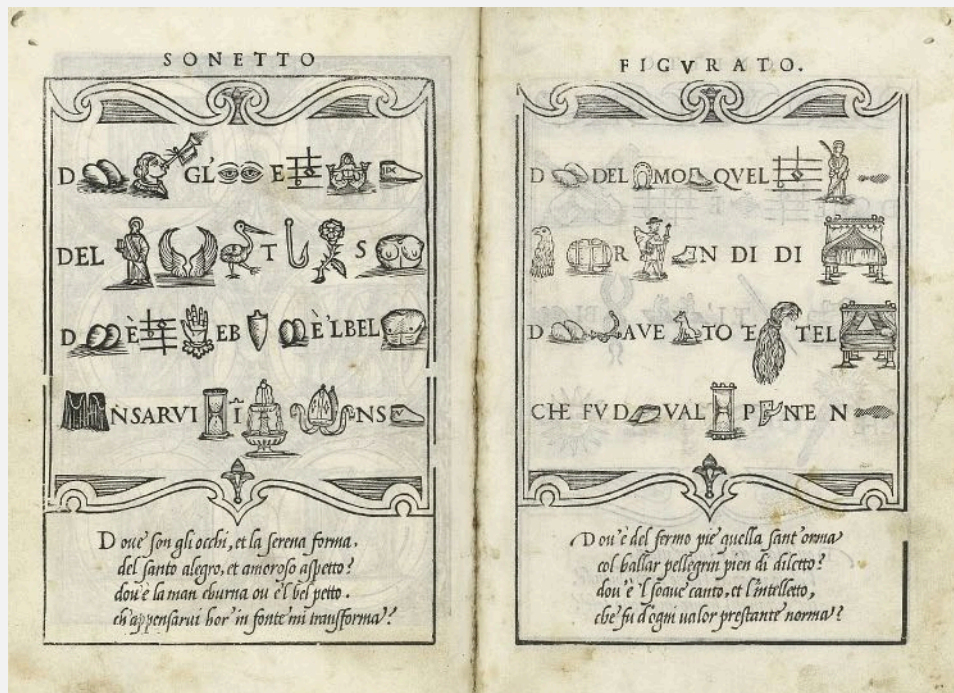 SONETTO
D GL' E
DEL T S
D È EB È'LBEL
NSARVI I NS
Doue son gli occhi, et la serena forma.
del santo alegro, et amoroso aspetto?
dou'è la man eburna ou è'l bel petto.
ch'appensarui hor' in fonte mi transforma?
FIGVRATO.
D DEL MO QVEL
R N DI DI
D AVE TO E TEL
CHE FVD VAL P NTE N
Dou'è del fermo piè quella sant'orma
col ballar pellegrin pien di diletto?
dou'è 'l soaue canto, et l'intelletto,
che fu d'ogni ualor prestante norma?